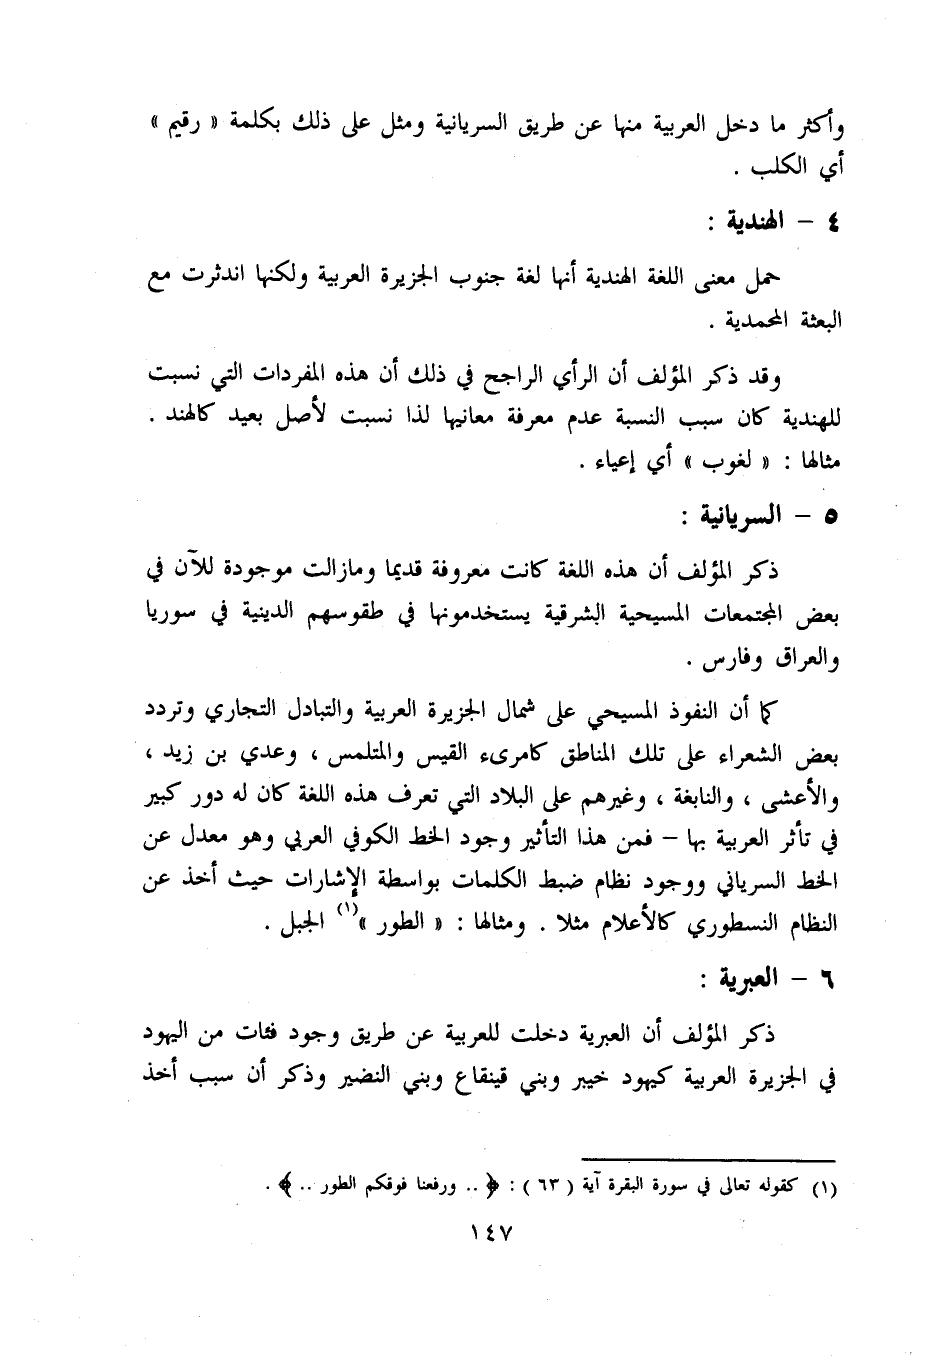 وأكثر ما دخل العربية منها عن طريق السريانية ومثل على ذلك بكلمة « رقيم »
أي الكلب .
٤ – الهندية :
حمل معنى اللغة الهندية أنها لغة جنوب الجزيرة العربية ولكنها اندثرت مع
البعثة المحمدية .
وقد ذكر المؤلف أن الرأي الراجح في ذلك أن هذه المفردات التي نسبت
للهندية كان سبب النسبة عدم معرفة معانيها لذا نسبت لأصل بعيد كالهند .
مثالها : « لغوب » أي إعياء .
٥ – السريانية :
ذكر المؤلف أن هذه اللغة كانت معروفة قديما ومازالت موجودة للآن في
بعض المجتمعات المسيحية الشرقية يستخدمونها في طقوسهم الدينية في سوريا
والعراق وفارس .
كما أن النفوذ المسيحي على شمال الجزيرة العربية والتبادل التجاري وتردد
بعض الشعراء على تلك المناطق كامرىء القيس والمتلمس ، وعدي بن زيد ،
والأعشى ، والنابغة ، وغيرهم على البلاد التي تعرف هذه اللغة كان له دور كبير
في تأثر العربية بها – فمن هذا التأثير وجود الخط الكوفي العربي وهو معدل عن
الخط السرياني ووجود نظام ضبط الكلمات بواسطة الإشارات حيث أخذ عن
النظام النسطوري كالأعلام مثلا . ومثالها : « الطور »(١) الجبل .
٦ – العبرية :
ذكر المؤلف أن العبرية دخلت للعربية عن طريق وجود فئات من اليهود
في الجزيرة العربية كيهود خيبر وبني قينقاع وبني النضير وذكر أن سبب أخذ
(١) كقوله تعالى في سورة البقرة آية ( ٦٣ ) : ﴿ .. ورفعنا فوقكم الطور .. ﴾ .
١٤٧